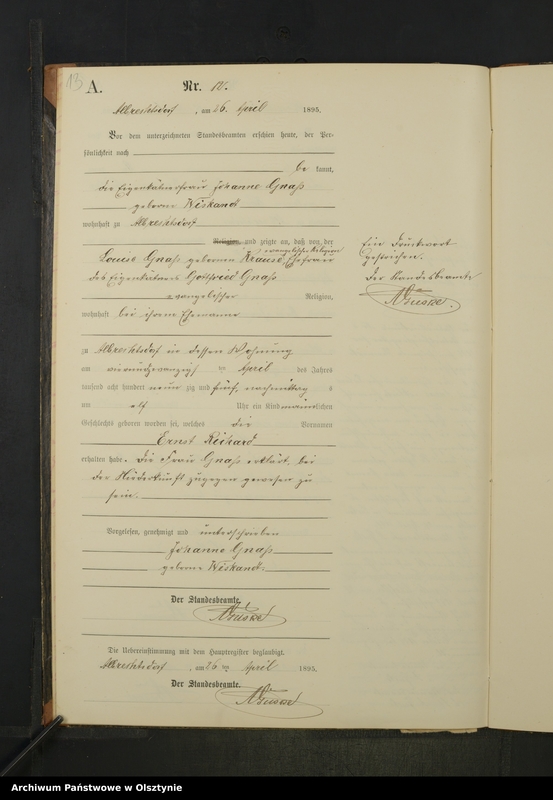 13
A.
Nr. 12.
Albrechtsdorf, am 26. April 1895.
Vor dem unterzeichneten Standesbeamten erschien heute, der Per-
sönlichkeit nach
be kannt,
die Eigenkäthnerfrau Johanne Gnaß
geborne Wiskandt
wohnhaft zu Albrechtsdorf
Religion, und zeigte an, daß von der
Louise Gnaß geborenen Krause, evangelischer Religion Ehefrau
des Eigenkäthners Gottfried Gnaß
evangelischer Religion,
wohnhaft bei ihrem Ehemanne
zu Albrechtsdorf in dessen Wohnung
am vierundzwanzigsten April des Jahres
tausend acht hundert neun zig und fünf, nachmittag s
um elf Uhr ein Kind männlichen
Geschlechts geboren worden sei, welches die Vornamen
Ernst Richard
erhalten habe. Die Frau Gnaß erklärt, bei
der Niederkunft zugegen gewesen zu
sein.
Vorgelesen, genehmigt und unterschrieben
Johanne Gnaß
geborne Wiskandt.
Der Standesbeamte.
Die Uebereinstimmung mit dem Hauptregister beglaubigt.
Albrechtsdorf, am 26ten April 1895.
Der Standesbeamte.
Ein Druckwort
gestrichen.
Der Standesbeamte
Archiwum Państwowe w Olsztynie